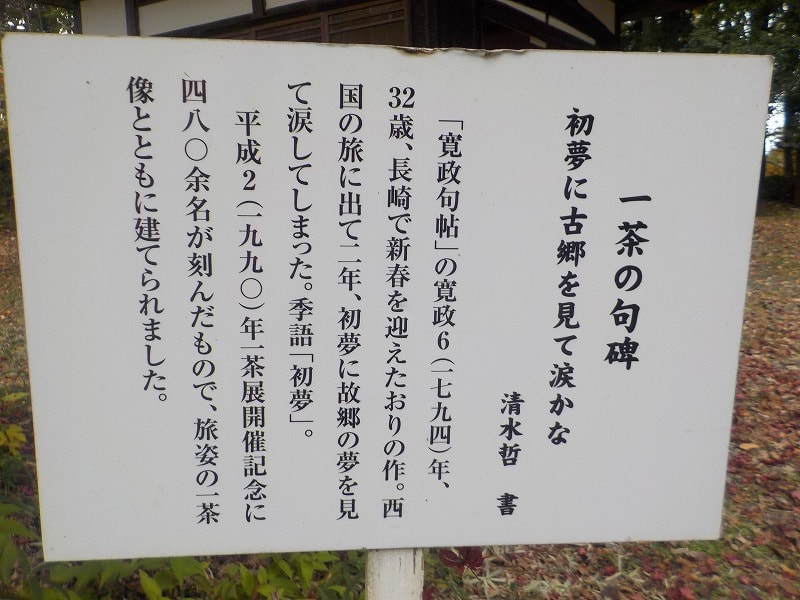 一茶の句碑
初夢に古郷を見て涙かな
清水哲　書
「寛政句帖」の寛政6（一七九四）年、
32歳、長崎で新春を迎えたおりの作。西
国の旅に出て二年、初夢に故郷の夢を見
て涙してしまった。季語「初夢」。
平成2（一九九〇）年一茶展開催記念に
四八〇余名が刻んだもので、旅姿の一茶
像とともに建てられました。